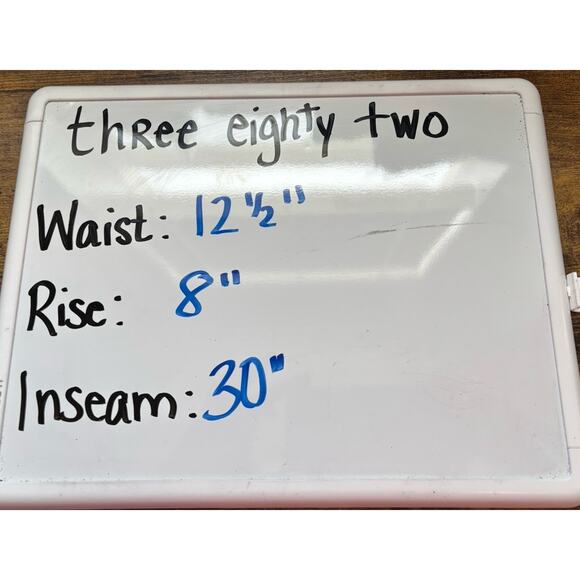 three eighty two
Waist: 12 1/2"
Rise: 8"
Inseam: 30"